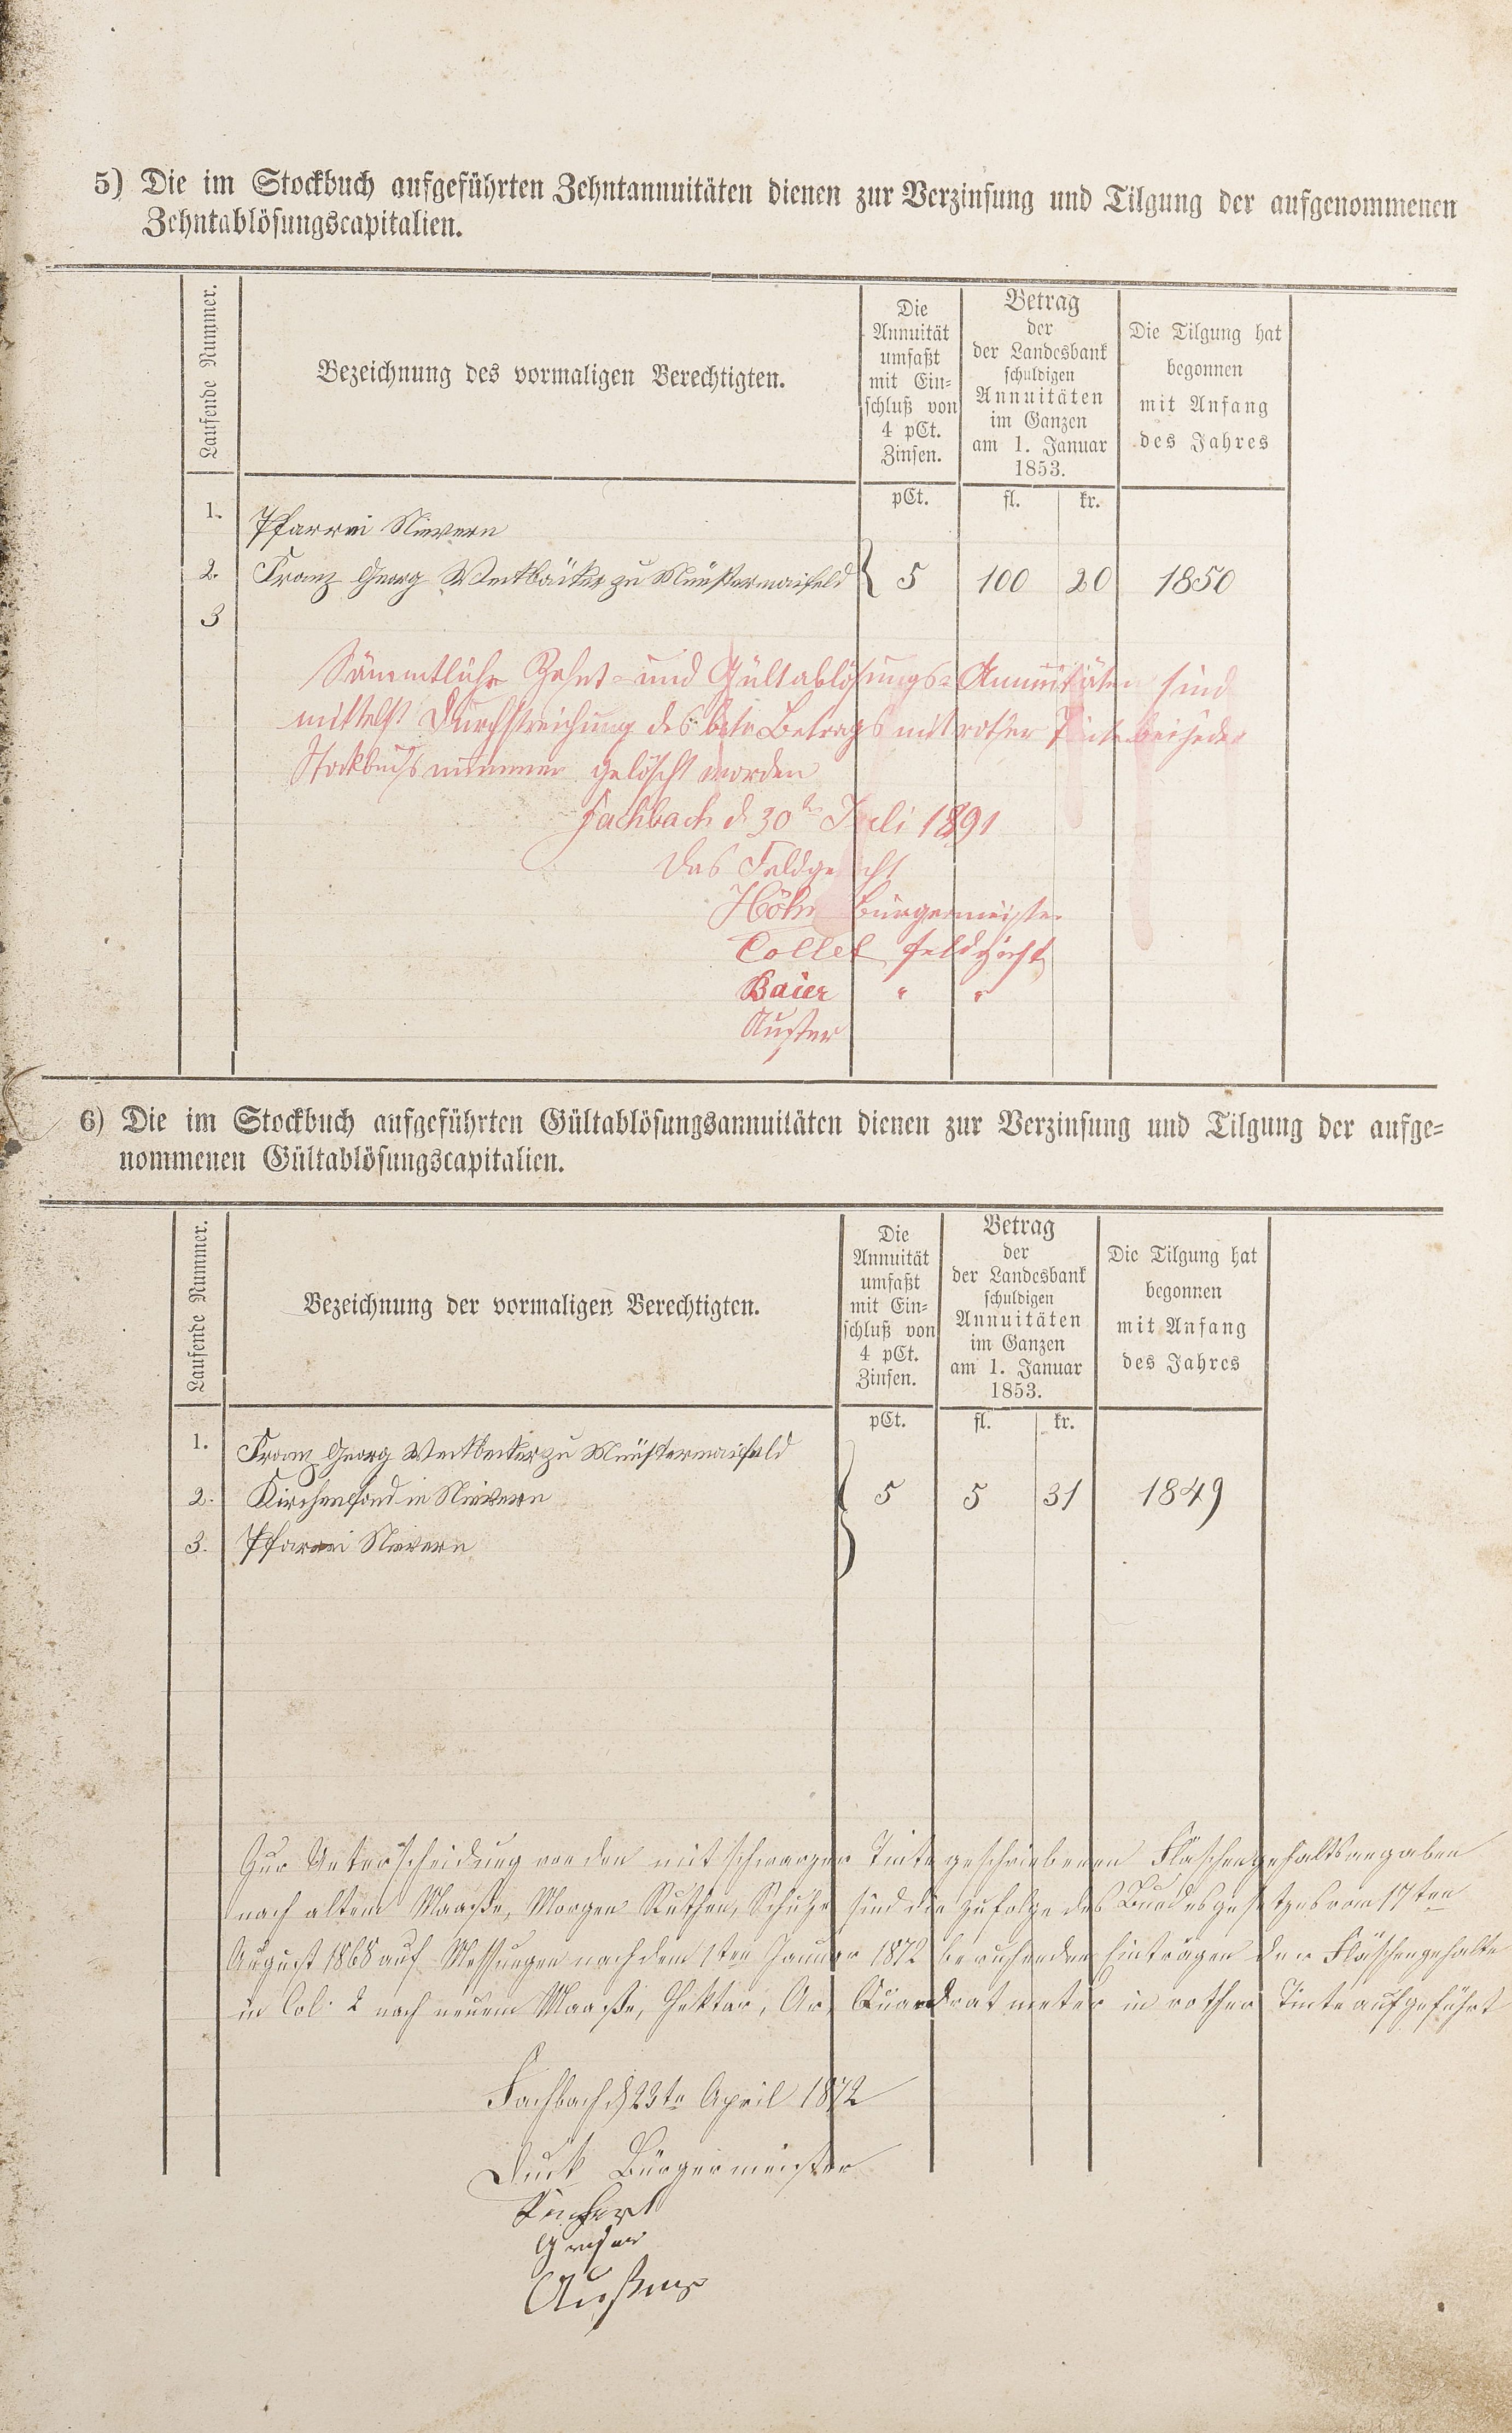 5) Die im Stockbuch aufgeführten Zehntannuitäten dienen zur Verzinsung und Tilgung der aufgenommenen
Zehntablösungscapitalien.
Laufende Nummer.
Bezeichnung des vormaligen Berechtigten.
Die
Annuität
umfaßt
mit Ein=
schluß von
4 pCt.
Zinsen.
Betrag
der
der Landesbank
schuldigen
Annuitäten
im Ganzen
am 1. Januar
1853.
Die Tilgung hat
begonnen
mit Anfang
des Jahres
pCt. fl. kr.
1. Pfarrei Nievern
2. Franz Georg zu Münstermaifeld 5 100 20 1850
3
Sämmtliche Zehnt- und Gültablösungs-Annuitäten sind
mittelst Durchstreichung des betr. Betrags mit rother Tinte bei jeder
Stockbuchsnummer gelöscht worden
Fachbach d 30ten Juli 1891
Das Feldgericht
Höhn Bürgermeister
Collet Feldgericht
Baier " "
6) Die im Stockbuch aufgeführten Gültablösungsannuitäten dienen zur Verzinsung und Tilgung der aufge=
nommenen Gültablösungscapitalien.
Laufende Nummer.
Bezeichnung der vormaligen Berechtigten.
Die
Annuität
umfaßt
mit Ein=
schluß von
4 pCt.
Zinsen.
Betrag
der
der Landesbank
schuldigen
Annuitäten
im Ganzen
am 1. Januar
1853.
Die Tilgung hat
begonnen
mit Anfang
des Jahres
pCt. fl. kr.
1. Franz Georg zu Münstermaifeld
2. Kirchenfond in Nievern 5 5 31 1849
3. Pfarrei Nievern
Zur Unterscheidung von den mit schwarzer Tinte geschriebenen Flächengehaltsangaben
nach altem Maaße, Morgen Ruthen, Schuhe sind die zufolge des Bundesgesetzes vom 17ten
August 1868 auf Messungen nach dem 1ten Januar 1872 beruhenden Einträgen der Flächengehalte
in Col. 2 nach neuem Maaße, Hektar, Ar, Quardratmeter in rother Tinte aufgeführt
Fachbach d 23te April 1872
Bürgermeister